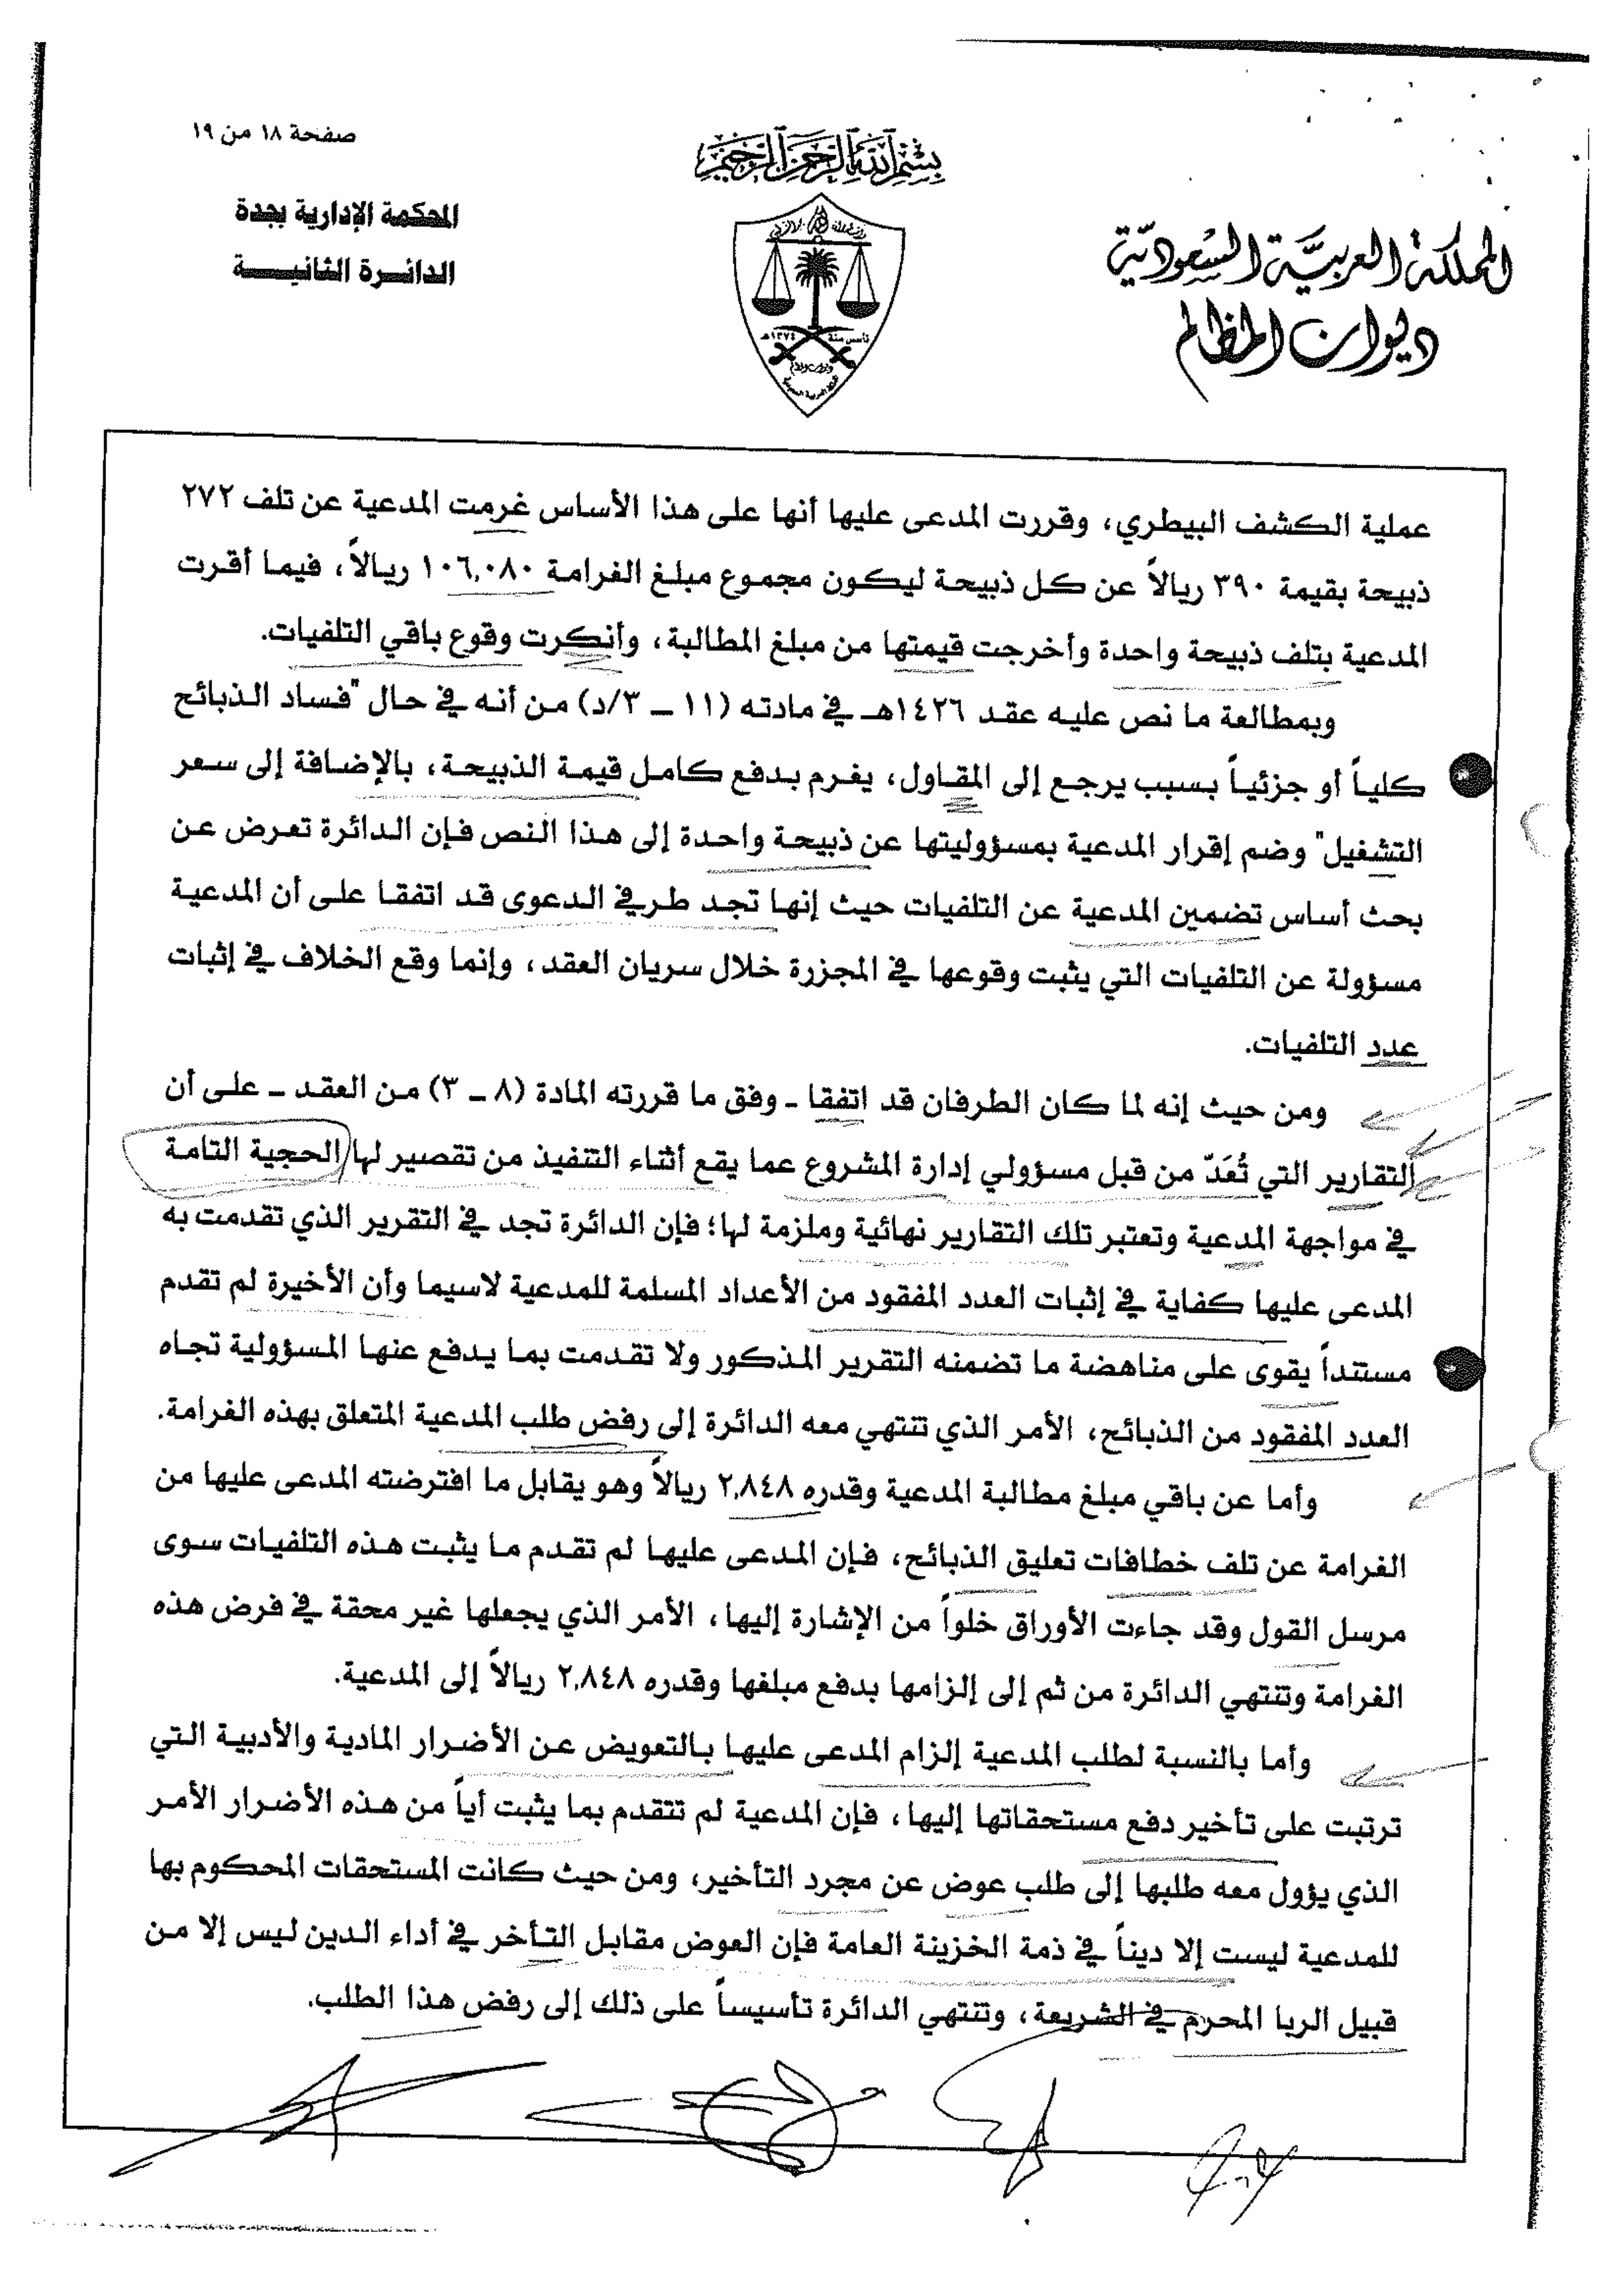 صفحة ١٨ من ١٩
بسم الله الرحمن الرحيم
المملكة العربية السعودية
ديوان المظالم
المحكمة الإدارية بجدة
الدائرة الثانية
تأسس سنة ١٣٧٤هـ
عملية الكشف البيطري، وقررت المدعى عليها أنها على هذا الأساس غرمت المدعية عن تلف ٢٧٢
ذبيحة بقيمة ٣٩٠ ريالاً عن كل ذبيحة ليكون مجموع مبلغ الغرامة ١٠٦,٠٨٠ ريالاً، فيما أقرت
المدعية بتلف ذبيحة واحدة وأخرجت قيمتها من مبلغ المطالبة، وأنكرت وقوع باقي التلفيات.
وبمطالعة ما نص عليه عقد ١٤٢٦هـ في مادته (١١ – ٣/د) من أنه في حال "فساد الذبائح
كلياً أو جزئياً بسبب يرجع إلى المقاول، يغرم بدفع كامل قيمة الذبيحة، بالإضافة إلى سعر
التشغيل" وضم إقرار المدعية بمسؤوليتها عن ذبيحة واحدة إلى هذا النص فإن الدائرة تعرض عن
بحث أساس تضمين المدعية عن التلفيات حيث إنها تجد طرفي الدعوى قد اتفقا على أن المدعية
مسؤولة عن التلفيات التي يثبت وقوعها في المجزرة خلال سريان العقد، وإنما وقع الخلاف في إثبات
عدد التلفيات.
ومن حيث إنه لما كان الطرفان قد اتفقا - وفق ما قررته المادة (٨ – ٣) من العقد - على أن
التقارير التي تُعَدّ من قبل مسؤولي إدارة المشروع عما يقع أثناء التنفيذ من تقصير لها الحجية التامة
في مواجهة المدعية وتعتبر تلك التقارير نهائية وملزمة لها؛ فإن الدائرة تجد في التقرير الذي تقدمت به
المدعى عليها كفاية في إثبات العدد المفقود من الأعداد المسلمة للمدعية لاسيما وأن الأخيرة لم تقدم
مستنداً يقوى على مناهضة ما تضمنه التقرير المذكور ولا تقدمت بما يدفع عنها المسؤولية تجاه
العدد المفقود من الذبائح، الأمر الذي تنتهي معه الدائرة إلى رفض طلب المدعية المتعلق بهذه الغرامة.
وأما عن باقي مبلغ مطالبة المدعية وقدره ٢,٨٤٨ ريالاً وهو يقابل ما افترضته المدعى عليها من
الغرامة عن تلف خطافات تعليق الذبائح، فإن المدعى عليها لم تقدم ما يثبت هذه التلفيات سوى
مرسل القول وقد جاءت الأوراق خلواً من الإشارة إليها، الأمر الذي يجعلها غير محقة في فرض هذه
الغرامة وتنتهي الدائرة من ثم إلى إلزامها بدفع مبلغها وقدره ٢,٨٤٨ ريالاً إلى المدعية.
وأما بالنسبة لطلب المدعية إلزام المدعى عليها بالتعويض عن الأضرار المادية والأدبية التي
ترتبت على تأخير دفع مستحقاتها إليها، فإن المدعية لم تتقدم بما يثبت أياً من هذه الأضرار الأمر
الذي يؤول معه طلبها إلى طلب عوض عن مجرد التأخير، ومن حيث كانت المستحقات المحكوم بها
للمدعية ليست إلا ديناً في ذمة الخزينة العامة فإن العوض مقابل التأخر في أداء الدين ليس إلا من
قبيل الربا المحرم في الشريعة، وتنتهي الدائرة تأسيساً على ذلك إلى رفض هذا الطلب.